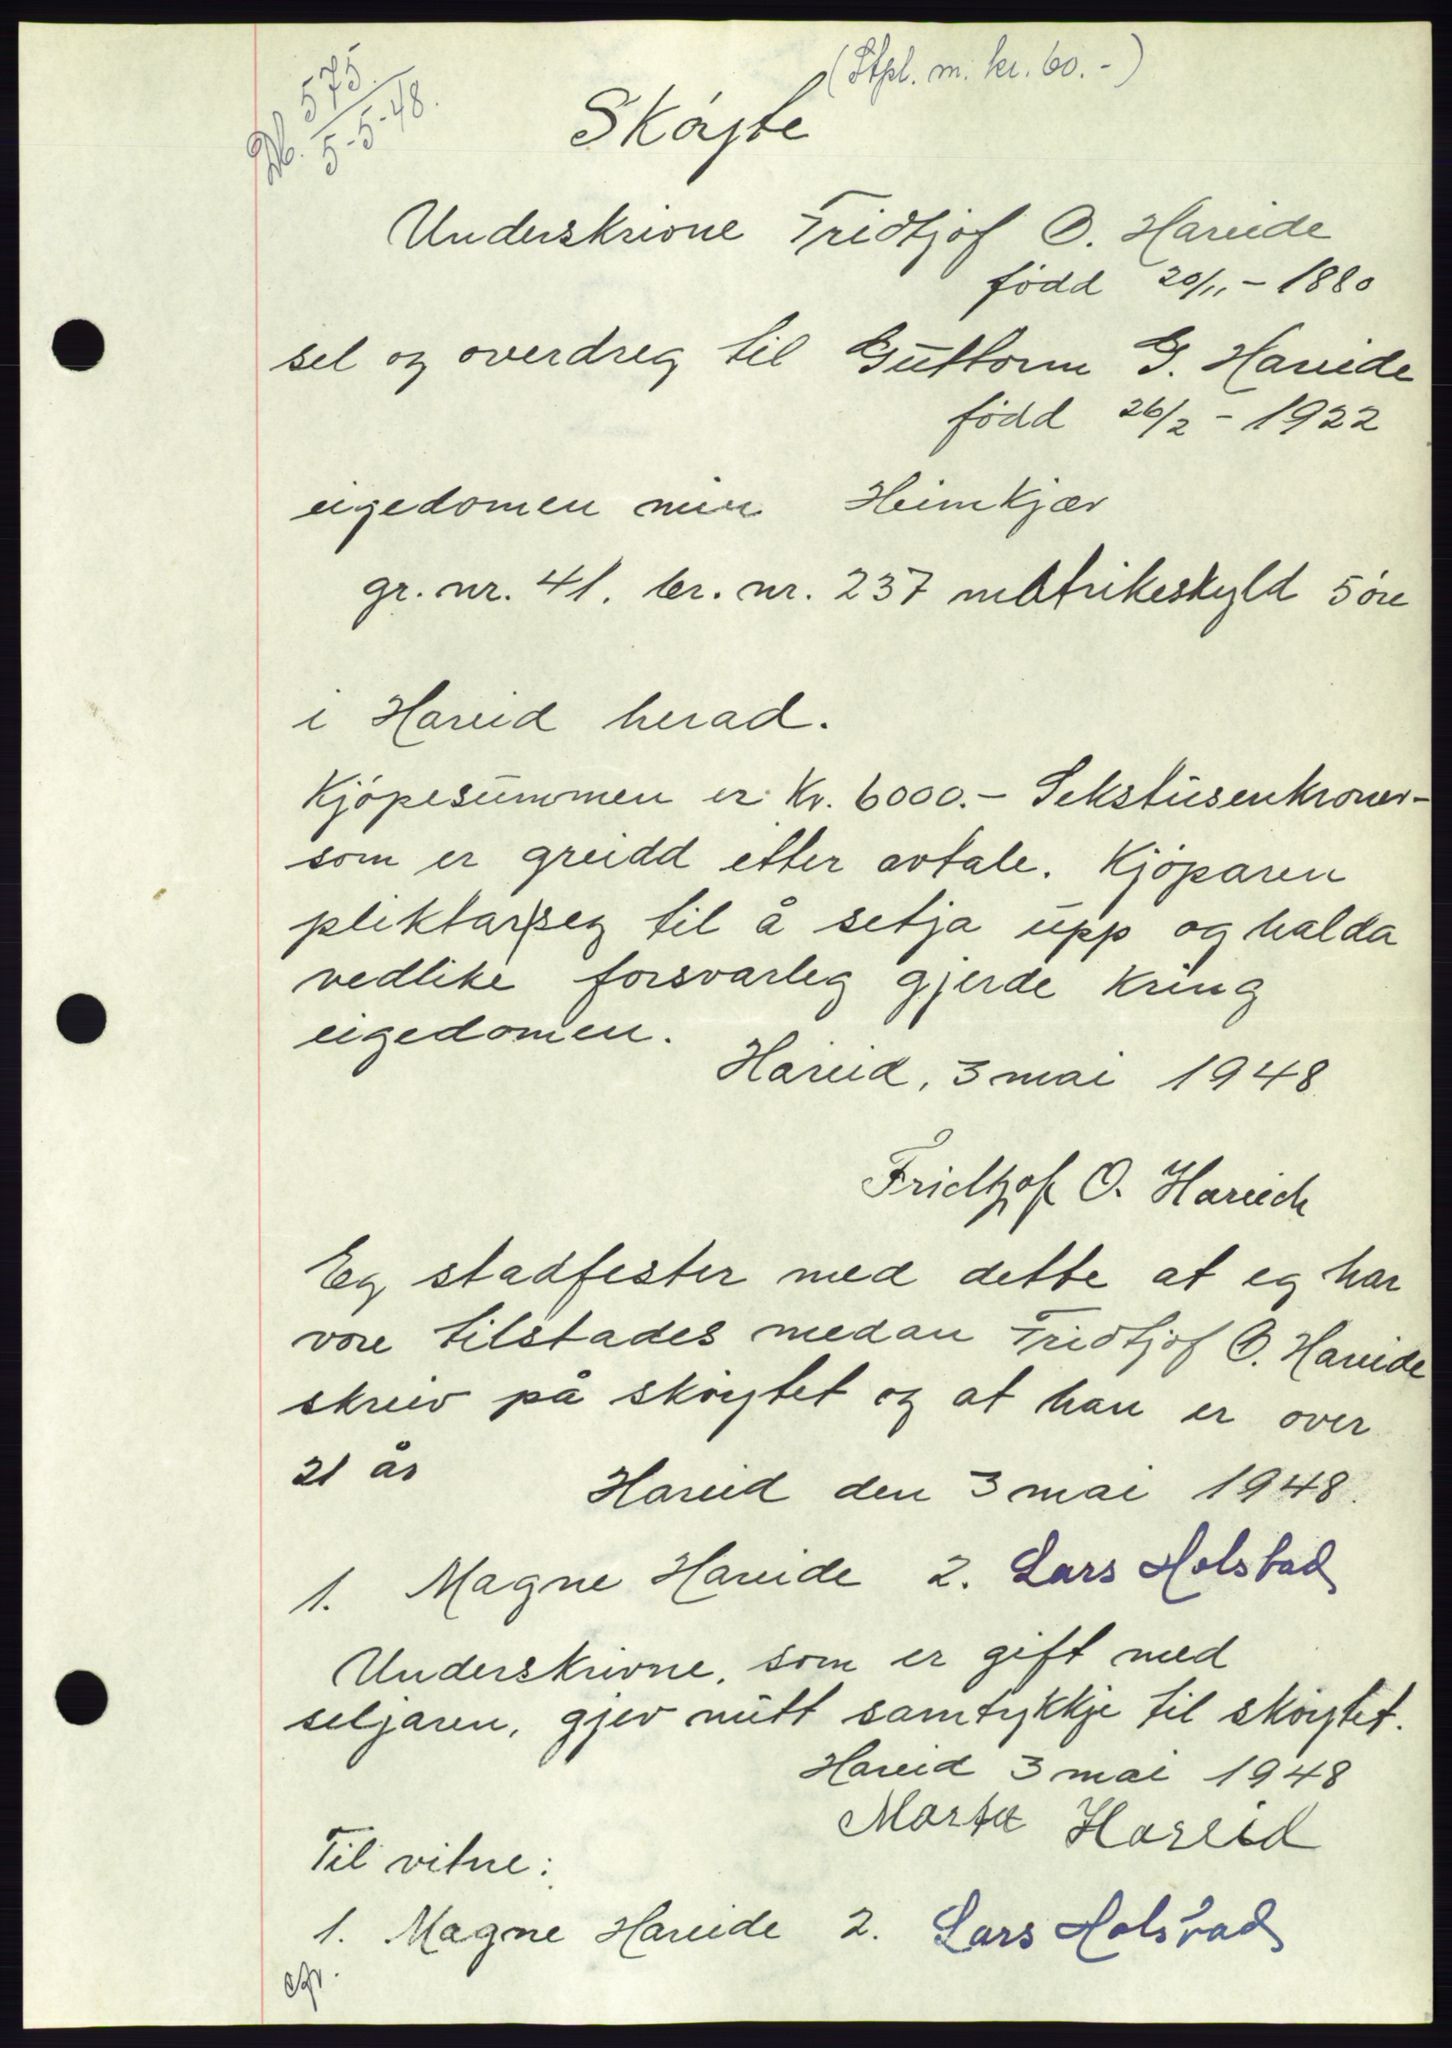 (Stpl. m. kr. 60.-)
Db. 575
5-5-48.
Skøyte
Underskrivne Fridtjof O. Hareide
född 20/11 - 1880
sel og overdreg til Guttorm G. Hareide
född 26/2 - 1922
eigedomen min Heimkjær
gr. nr. 41. br. nr. 237 matrikeskyld 5 öre
i Hareid herad.
Kjöpesummen er Kr. 6000.- Sekstusenkroner-
som er greidd etter avtale. Kjöparen
pliktar seg til å setja upp og halda
vedlike forsvarleg gjerde kring
eigedomen.
Hareid, 3 mai 1948
Fridtjof O. Hareide
Eg stadfester med dette at eg har
vore tilstades medan Fridtjof O. Hareide
skreiv på skøytet og at han er over
21 år
Hareid den 3 mai 1948.
1. Magne Hareide 2. Lars Holstad
Underskrivne, som er gift med
seljaren, gjev mitt samtykkje til skøytet.
Hareid 3 mai 1948
Marta Hareid
Til vitne:
1. Magne Hareide 2. Lars Holstad